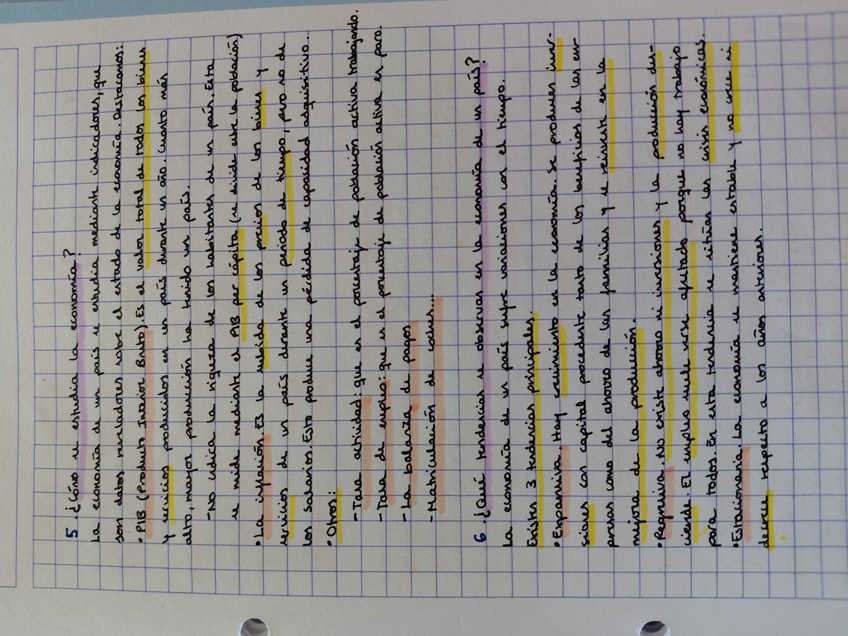 5. ¿Cómo se estudia la economía?
La economía de un país se estudia mediante indicadores, que
son datos reveladores sobre el estado de la economía. Destacamos:
• PIB (Producto Interior Bruto). Es el valor total de todos los bienes
y servicios producidos en un país durante un año. Cuanto más
alto, mayor producción ha tenido un país.
- No indica la riqueza de los habitantes de un país. Esta
se mide mediante el PIB per cápita (se divide entre la población)
• La inflación. Es la subida de los precios de los bienes y
servicios de un país durante un periodo de tiempo, pero no de
los salarios. Esto produce una pérdida de capacidad adquisitiva.
• Otros:
- Tasa actividad: que es el porcentaje de población activa trabajando.
- Tasa de empleo: que es el porcentaje de población activa en paro.
- La balanza de pagos
- Matriculación de coches...
6. ¿Qué tendencias se observan en la economía de un país?
La economía de un país sufre variaciones con el tiempo.
Existen 3 tendencias principales.
• Expansiva. Hay crecimiento en la economía. Se producen inver-
siones con capital procedente tanto de los beneficios de las em-
presas como del ahorro de las familias y se reinvierte en la
mejora de la producción.
• Regresiva. No existe ahorro ni inversiones y la producción des-
ciende. El empleo suele verse afectado porque no hay trabajo
para todos. En esta tendencia se sitúan las crisis económicas.
• Estacionaria. La economía se mantiene estable y no crece ni
decrece respecto a los años anteriores.